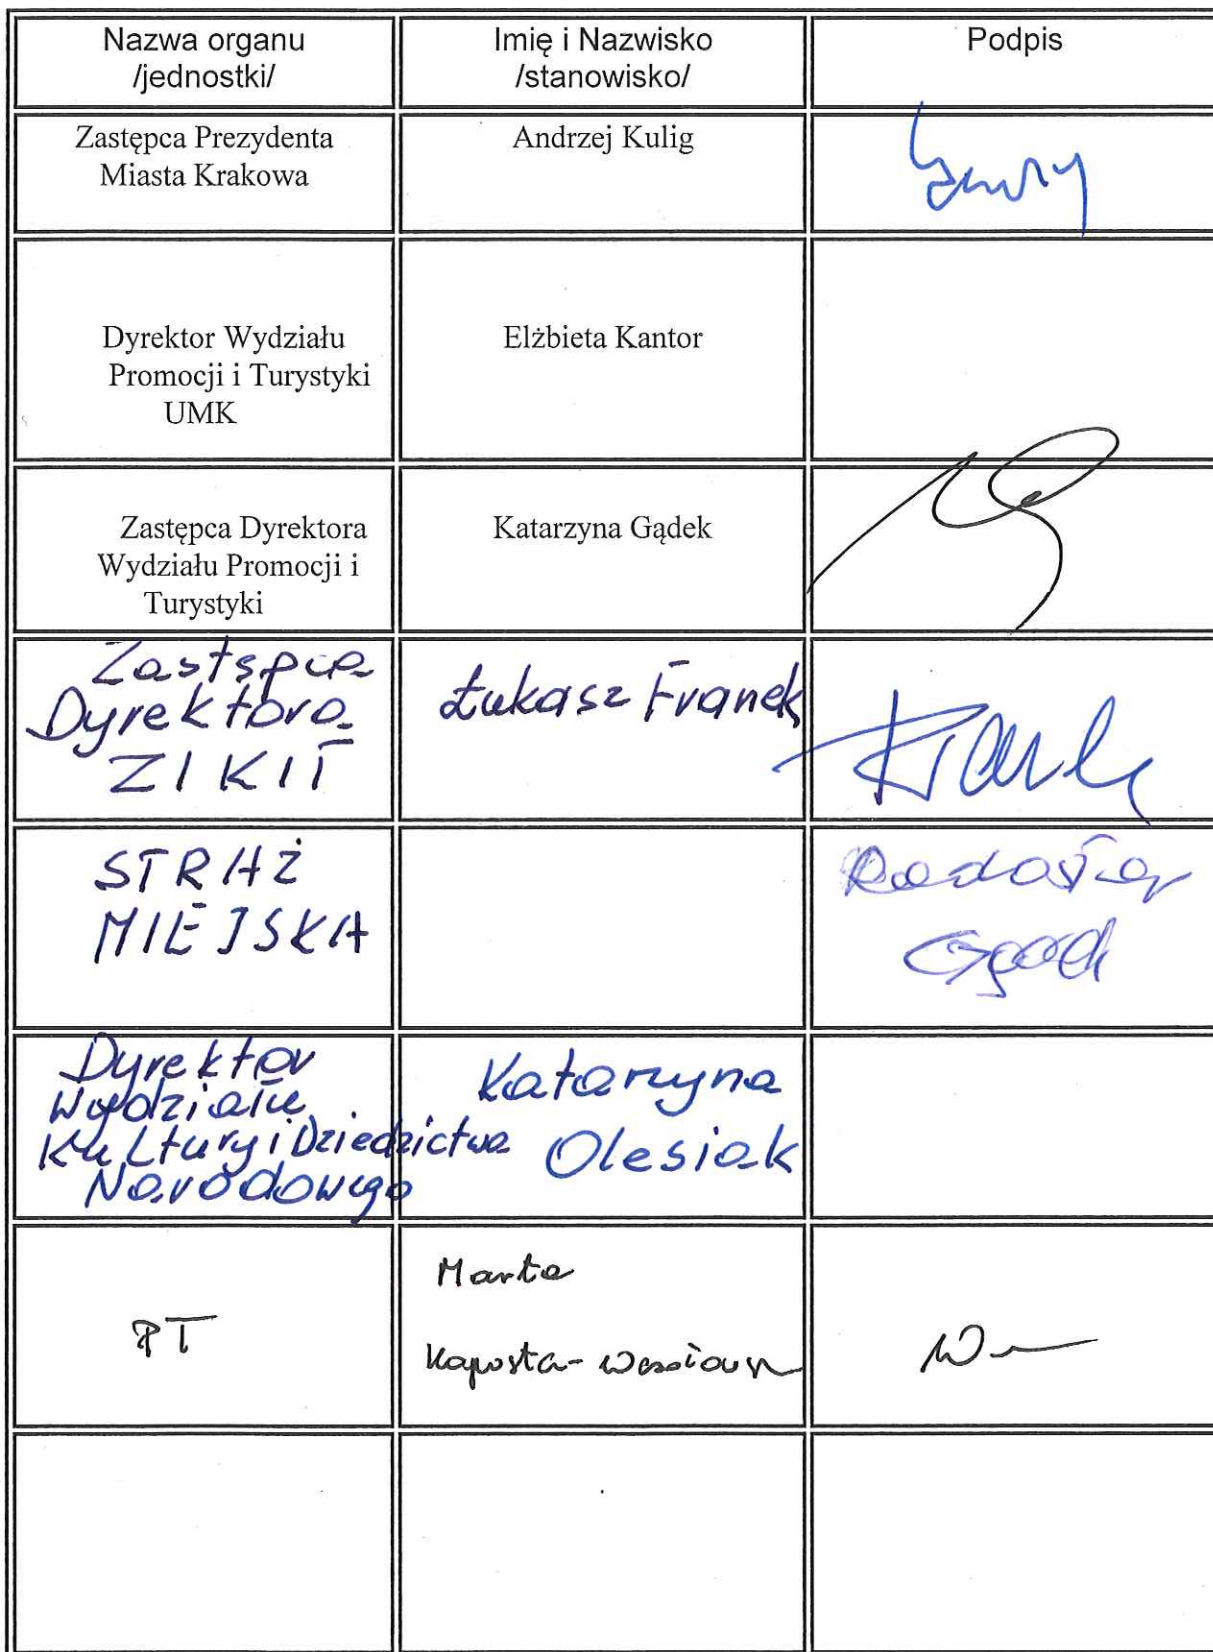 Nazwa organu
/jednostki/
Imię i Nazwisko
/stanowisko/
Podpis
Zastępca Prezydenta
Miasta Krakowa
Andrzej Kulig
Dyrektor Wydziału
Promocji i Turystyki
UMK
Elżbieta Kantor
Zastępca Dyrektora
Wydziału Promocji i
Turystyki
Katarzyna Gądek
Zastępca
Dyrektora
ZIKIT
Łukasz Franek
STRAŻ
MIEJSKA
Dyrektor
Wydziału
Kultury i Dziedzictwa
Narodowego
Katarzyna
Olesiak
PT
Marta
Kapusta-